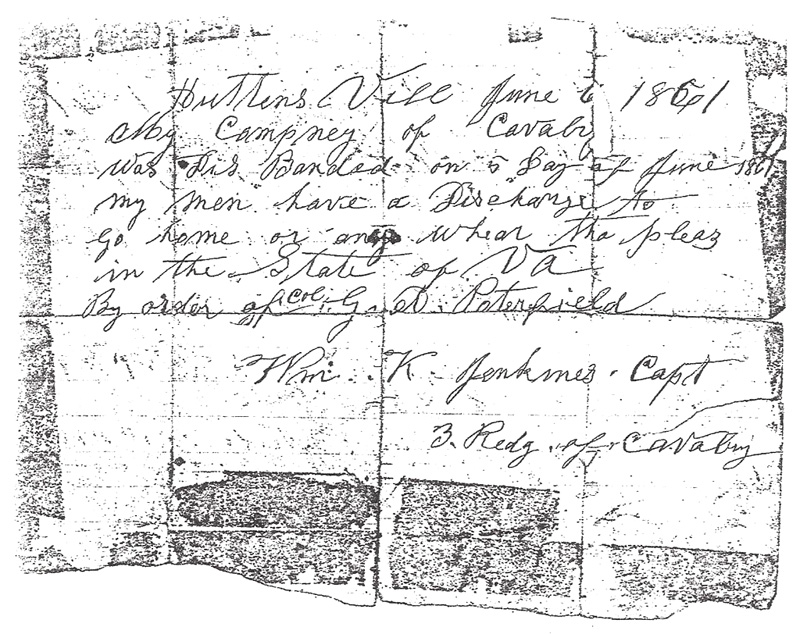 Huttens Vill June 6 1861
My Campney of Cavalry
was Dis Bandad on 5 Day of June 1861
my men have a Discharge to
Go home or any whear tha pleas
in the State of Va
By order of Col. G. A. Poterfield
Wm. K. Jenkines. Capt
3. Redg. of Cavalry